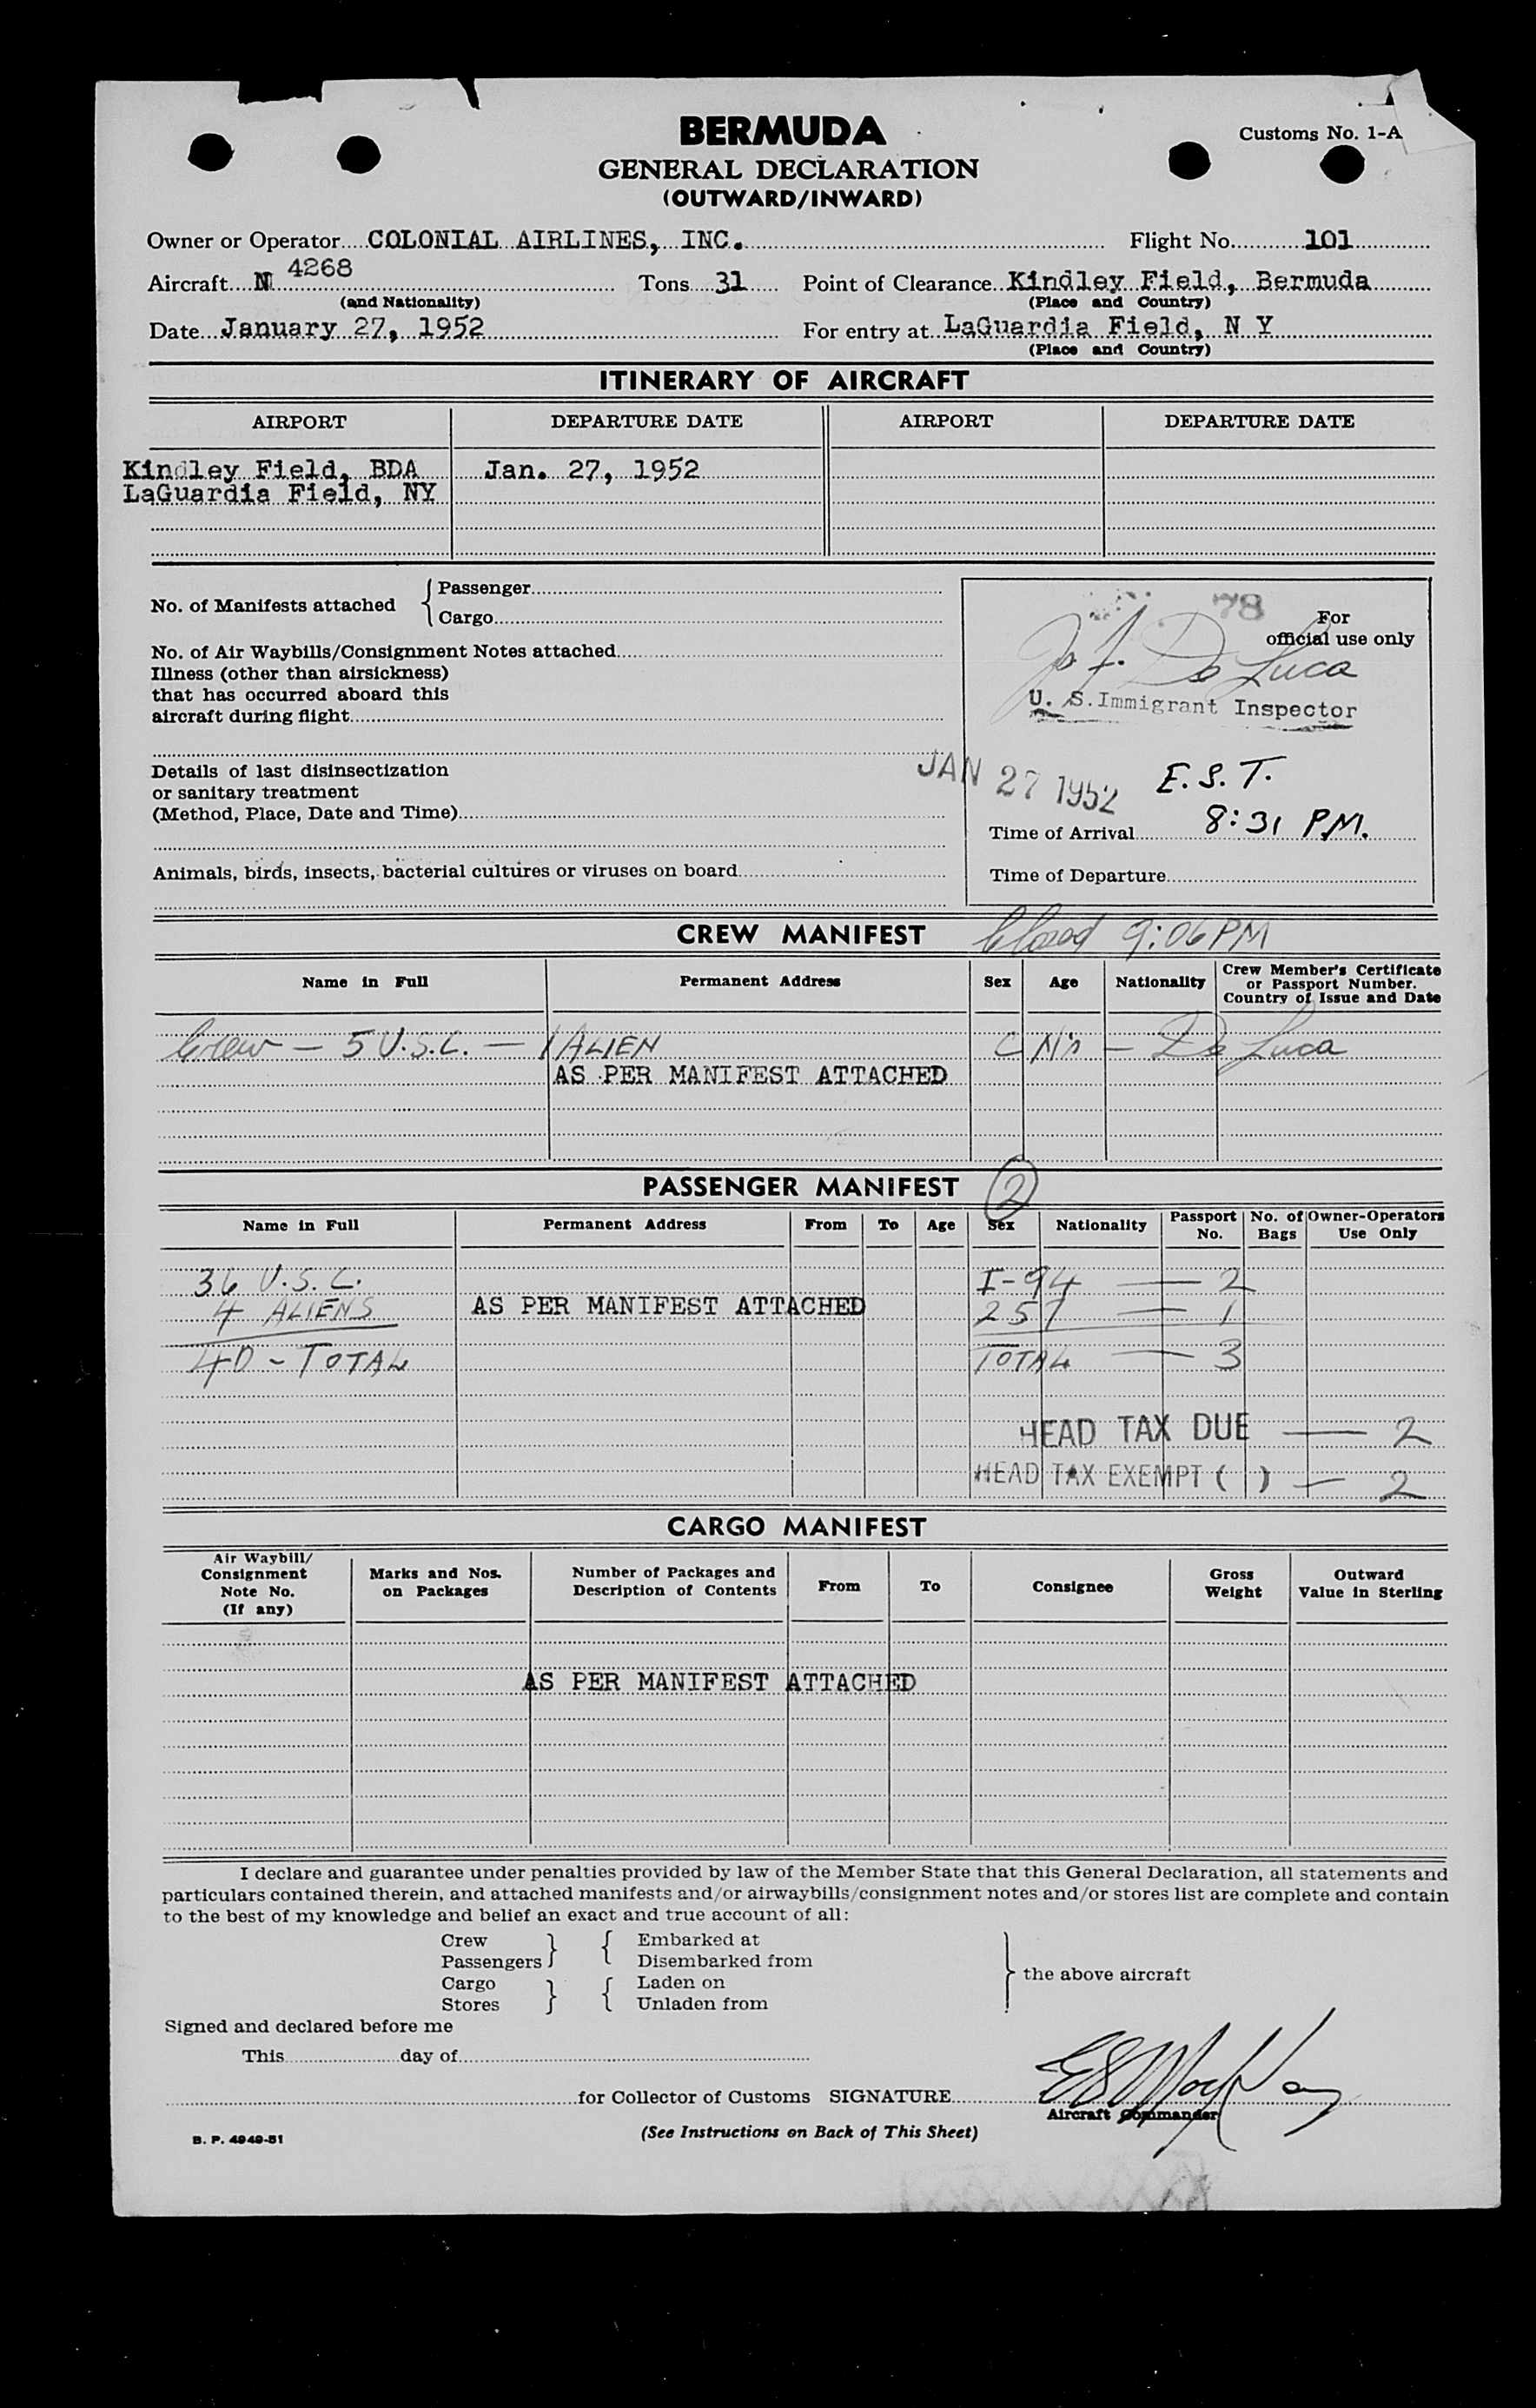 BERMUDA
Customs No. 1-A
GENERAL DECLARATION
(OUTWARD/INWARD)
Owner or Operator COLONIAL AIRLINES, INC. Flight No. 101
Aircraft N 4268 Tons 31 Point of Clearance Kindley Field, Bermuda
(and Nationality) (Place and Country)
Date January 27, 1952 For entry at LaGuardia Field, N Y
(Place and Country)
ITINERARY OF AIRCRAFT
AIRPORT DEPARTURE DATE AIRPORT DEPARTURE DATE
Kindley Field, BDA Jan. 27, 1952
LaGuardia Field, NY
No. of Manifests attached { Passenger
Cargo
78 For
official use only
De Luca
U. S. Immigrant Inspector
No. of Air Waybills/Consignment Notes attached
Illness (other than airsickness)
that has occurred aboard this
aircraft during flight
Details of last disinsectization
or sanitary treatment
(Method, Place, Date and Time)
JAN 27 1952 E.S.T.
Time of Arrival 8:31 P.M.
Animals, birds, insects, bacterial cultures or viruses on board
Time of Departure
CREW MANIFEST Closed 9:06 PM
Name in Full Permanent Address Sex Age Nationality Crew Member's Certificate
or Passport Number.
Country of Issue and Date
Crew — 5 U.S.C. — 1 ALIEN — De Luca
AS PER MANIFEST ATTACHED
PASSENGER MANIFEST 2
Name in Full Permanent Address From To Age Sex Nationality Passport No. No. of Bags Owner-Operators Use Only
36 U.S.C. I-94 — 2
4 ALIENS AS PER MANIFEST ATTACHED 257 — 1
40 - TOTAL TOTAL — 3
HEAD TAX DUE — 2
HEAD TAX EXEMPT ( ) — 2
CARGO MANIFEST
Air Waybill/
Consignment
Note No.
(If any)
Marks and Nos.
on Packages
Number of Packages and
Description of Contents
From
To
Consignee
Gross
Weight
Outward
Value in Sterling
AS PER MANIFEST ATTACHED
I declare and guarantee under penalties provided by law of the Member State that this General Declaration, all statements and
particulars contained therein, and attached manifests and/or airwaybills/consignment notes and/or stores list are complete and contain
to the best of my knowledge and belief an exact and true account of all:
Crew } { Embarked at
Passengers } { Disembarked from
Cargo } { Laden on } the above aircraft
Stores } { Unladen from
Signed and declared before me
This day of
for Collector of Customs SIGNATURE
Aircraft Commander
B. P. 4949-51
(See Instructions on Back of This Sheet)